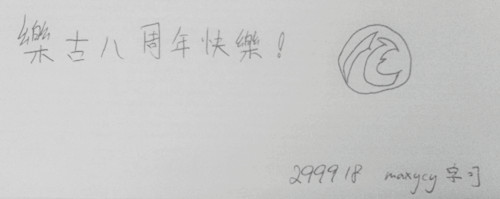 樂古八周年快樂!
299918 maxycy 字习